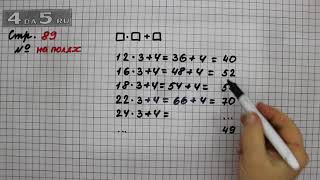 4DA5.RU
Стр. 89
№ на полях
□ · □ + □
12 · 3 + 4 = 36 + 4 = 40
16 · 3 + 4 = 48 + 4 = 52
18 · 3 + 4 = 54 + 4 =
22 · 3 + 4 = 66 + 4 = 70
24 · 3 + 4 = ...
... 49